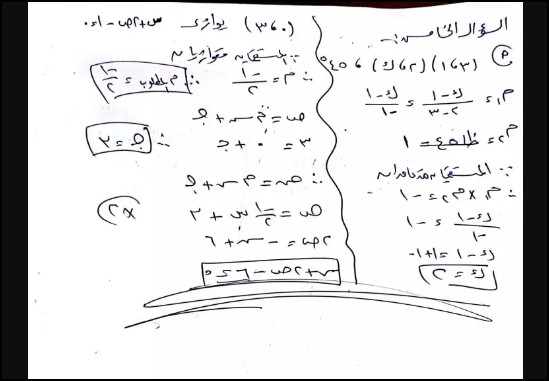 السؤال الخامس:
(١،٣)(٢،ك) ، ٤٥°
م١ = ك-١ / ٢-٣ = ك-١ / -١
م٢ = ظا ٤٥ = ١
∵ المستقيمان متعامدان
∴ م١ × م٢ = -١
ك-١ / -١ = -١
ك-١ = ١
ك = ٢
(٣،٠) يوازي س+٢ص-١=٠
∵ المستقيمان متوازيان
∴ م = -١/٢ ∴ م المطلوب = -١/٢
ص = م س + جـ
٣ = ٠ + جـ ∴ جـ = ٣
∴ ص = م س + جـ
ص = -١/٢ س + ٣ ×٢
٢ص = -س + ٦
س + ٢ص - ٦ = ٠